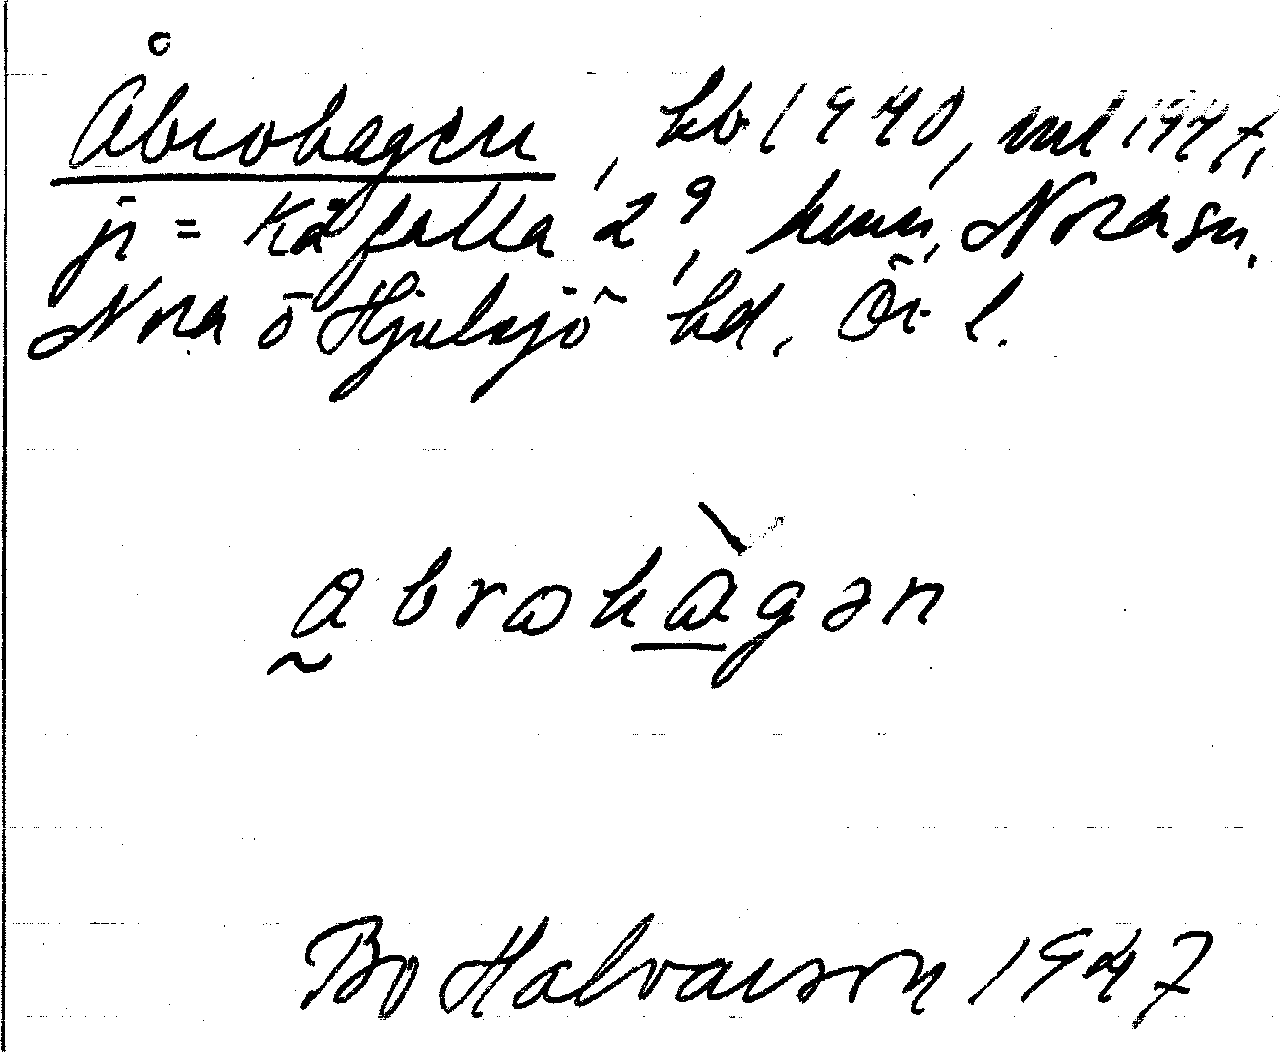 Åbrohagen, kb 1940, ml 1947,
jr = Käfalla 2⁹, hmn, Nora sn,
Nora o Hjulsjö hd, Ör l.
abrohàgən
Bo Halvarson 1947